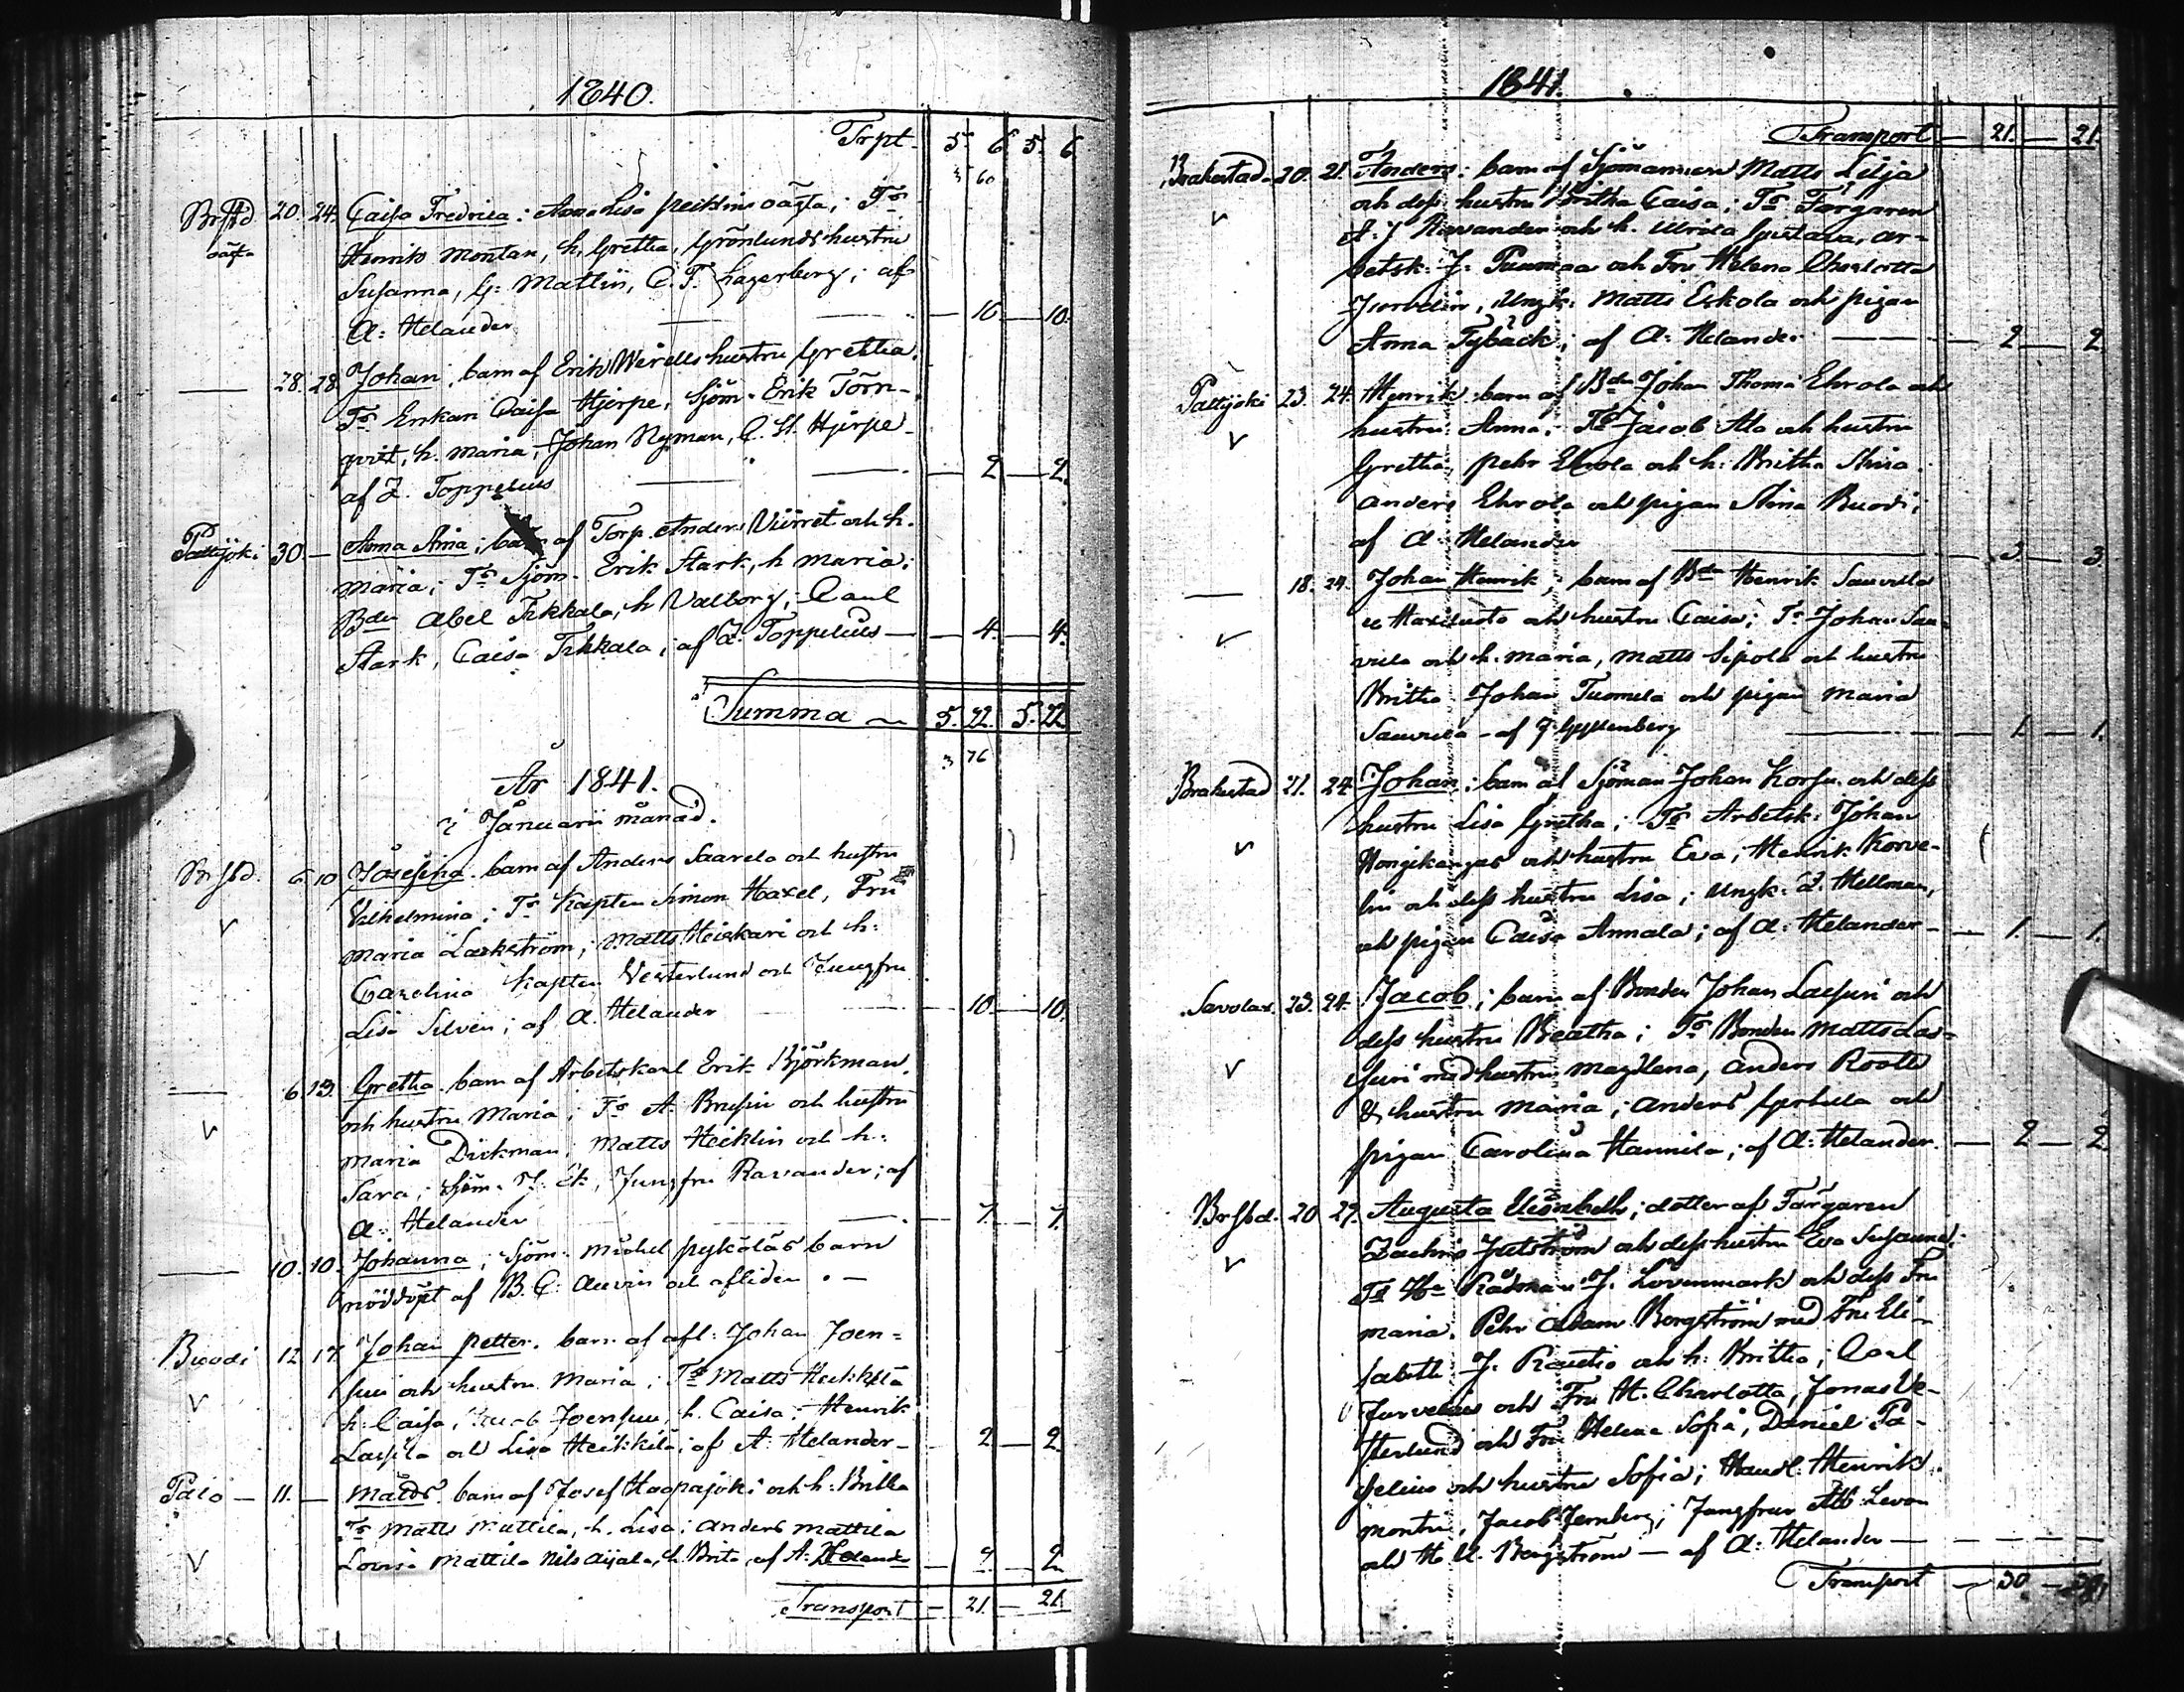 1840.
Trpt 5. 6 5. 6
3 60
Brhstd 20. 24. Caisa Fredrica: Anna Lisa peiktins oäkta; Ts
oäkta Henrik Montan, h. Gretha, Grönlunds hustru
Susanna, G: Matlin, C. F. Lagerberg; af
A: Helander — 10. — 10.
— 28. 28. Johan, barn af Erik Wirells hustru Gretha.
Ts Enkan Caisa Hjerpe, Sjöm. Erik Törn-
qvist, h. Maria, Johan Nyman, C. H. Hjerpe
af Z. Toppelius — 2 — 2.
Pattijoki 30. — Anna Stina; barn af Torp. Anders Viirret och h.
Maria; Ts Sjöm. Erik Stark, h Maria;
Bdn Abel Tikkala, h Valborg; Carl
Stark, Caisa Tikkala; af Z. Toppelius — 4. — 4.
Summa 5. 22. 5. 22
3 76
År 1841.
i Januarii månad.
Brhstd. 6. 10 Josefina barn af Anders Saarela och hustru
V Vilhelmina; Ts Kapten Simon Haxel, Fru
Maria Lackström; Matts Heiskari och h:
Carolina Kapten Vesterlund och Jungfru
Lisa Silvén; af A. Helander — 10. — 10.
— 6. 13. Gretha barn af Arbetskarl Erik Björkman,
V och hustru Maria; Ts A. Brusin och hustru
Maria Dickman; Matts Heiklin och h:
Sara; Sjöm. J. Ek, Jungfru Ravander; af
A: Helander — 7. — 7.
— 10. 10. Johanna; Sjöm. Michel pykäläs barn
nöddöpt af B. C. Auvin och afliden. —
Buodi 12 17. Johan petter. barn af afl: Johan Joen=
V suu och hustru Maria; Ts Matts Heikkilä
h. Caisa, Joensuu, h. Caisa: Henrik
Laspila och Lisa Heikkilä; af A: Helander — 2 — 2.
Palo — 11. — Matts. barn af Josef Haapajoki och h: Britta
Ts Matts Mattila, h. Lisa; Anders Mattila
V Lovisa Mattila Nils Aijala, h Brita, af A: Helander — 2. — 2
Transport — 21. — 21.
1841.
Transport — 21. — 21.
Brahestad 20. 21. Anders: barn af Sjömannen Matts Lilja
V och dess hustru Britha Caisa; Ts Färgaren
A. J Ravander och h. Ulrica Gustava, ar-
betsk: J: Puumaa och Fru Helena Charlotta
Jurvelin, Ungk: Matts Eskola och pigan
Anna Tybäck; af A: Helander — 2 — 2.
Pattijoki 23. 24. Henrik: barn af Bdn Johan Thoma Ehrola och
V hustru Anna; Ts Jacob Ala och hustru
Gretha, pehr Ehrola och h: Britha Stina
Anders Ehrola och pigan Stina Ruodi;
af A: Helander — 3. — 3.
— 18. 24. Johan Henrik, barn af Bdn Henrik Sauvula
V och hustru Caisa; Ts Johan Sau-
vula och h. Maria, Matts Sipola och hustru
Britha Johan Tuomela och pigan Maria
Sauvula — af J. Gyllenberg — 1. — 1.
Brahestad 21. 24. Johan; barn af Sjöman Johan Korsu och dess
V hustru Lisa Gretha; Ts Arbetsk: Johan
Hongikangas och hustru Eva; Henrik Korve-
lin och dess hustru Lisa; Ungk: Z. Hellman,
och pigan Caisa Annala; af A: Helander — 1. — 1.
Savolax. 23. 24. Jacob; barn af Bonden Johan Laesuri och
V dess hustru Beatha; Ts Bonden Matts Lae=
suri med hustru Magdlena, Anders Rooth
& hustru Maria; Anders och
pigan Carolina Hannila; af A: Helander. — 2 — 2.
Brhstd. 20 29. Augusta Elisabeth; dotter af Färgaren
V Zachris Julström och dess hustru Eva Susanna;
Ts Hr Rådman J. Lovenmark och dess Fru
Maria. Pehr Adam Bergström med Fru Eli-
sabeth J. Rautio och h: Britha; Carl
Jurvelius och Fru H. Charlotta, Jonas Ve-
sterlund och Fru Helena Sofia, Daniel Fa-
gelius och hustru Sofia; Handl. Henrik
Montin, Jacob Jernberg; Jungfrur Alb: Levon
och H. U. Bergström — af A: Helander — — — —
Transport — 30 —